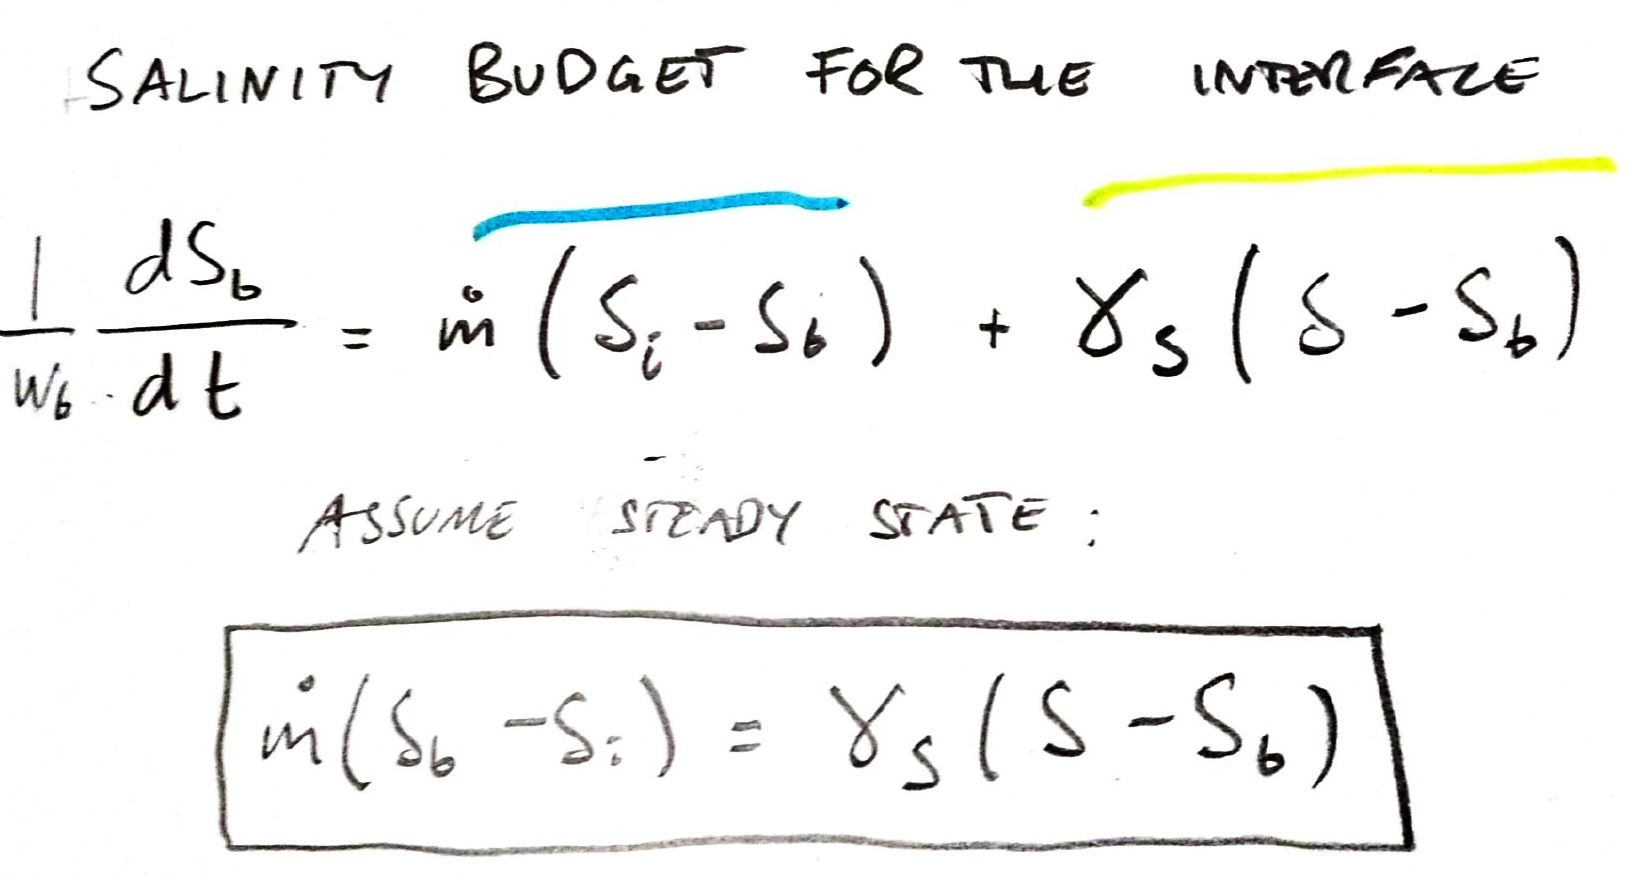 SALINITY BUDGET FOR THE INTERFACE
1/W_b dS_b/dt = ṁ (S_i - S_b) + γ_s (S - S_b)
ASSUME STEADY STATE:
ṁ(S_b - S_i) = γ_s (S - S_b)